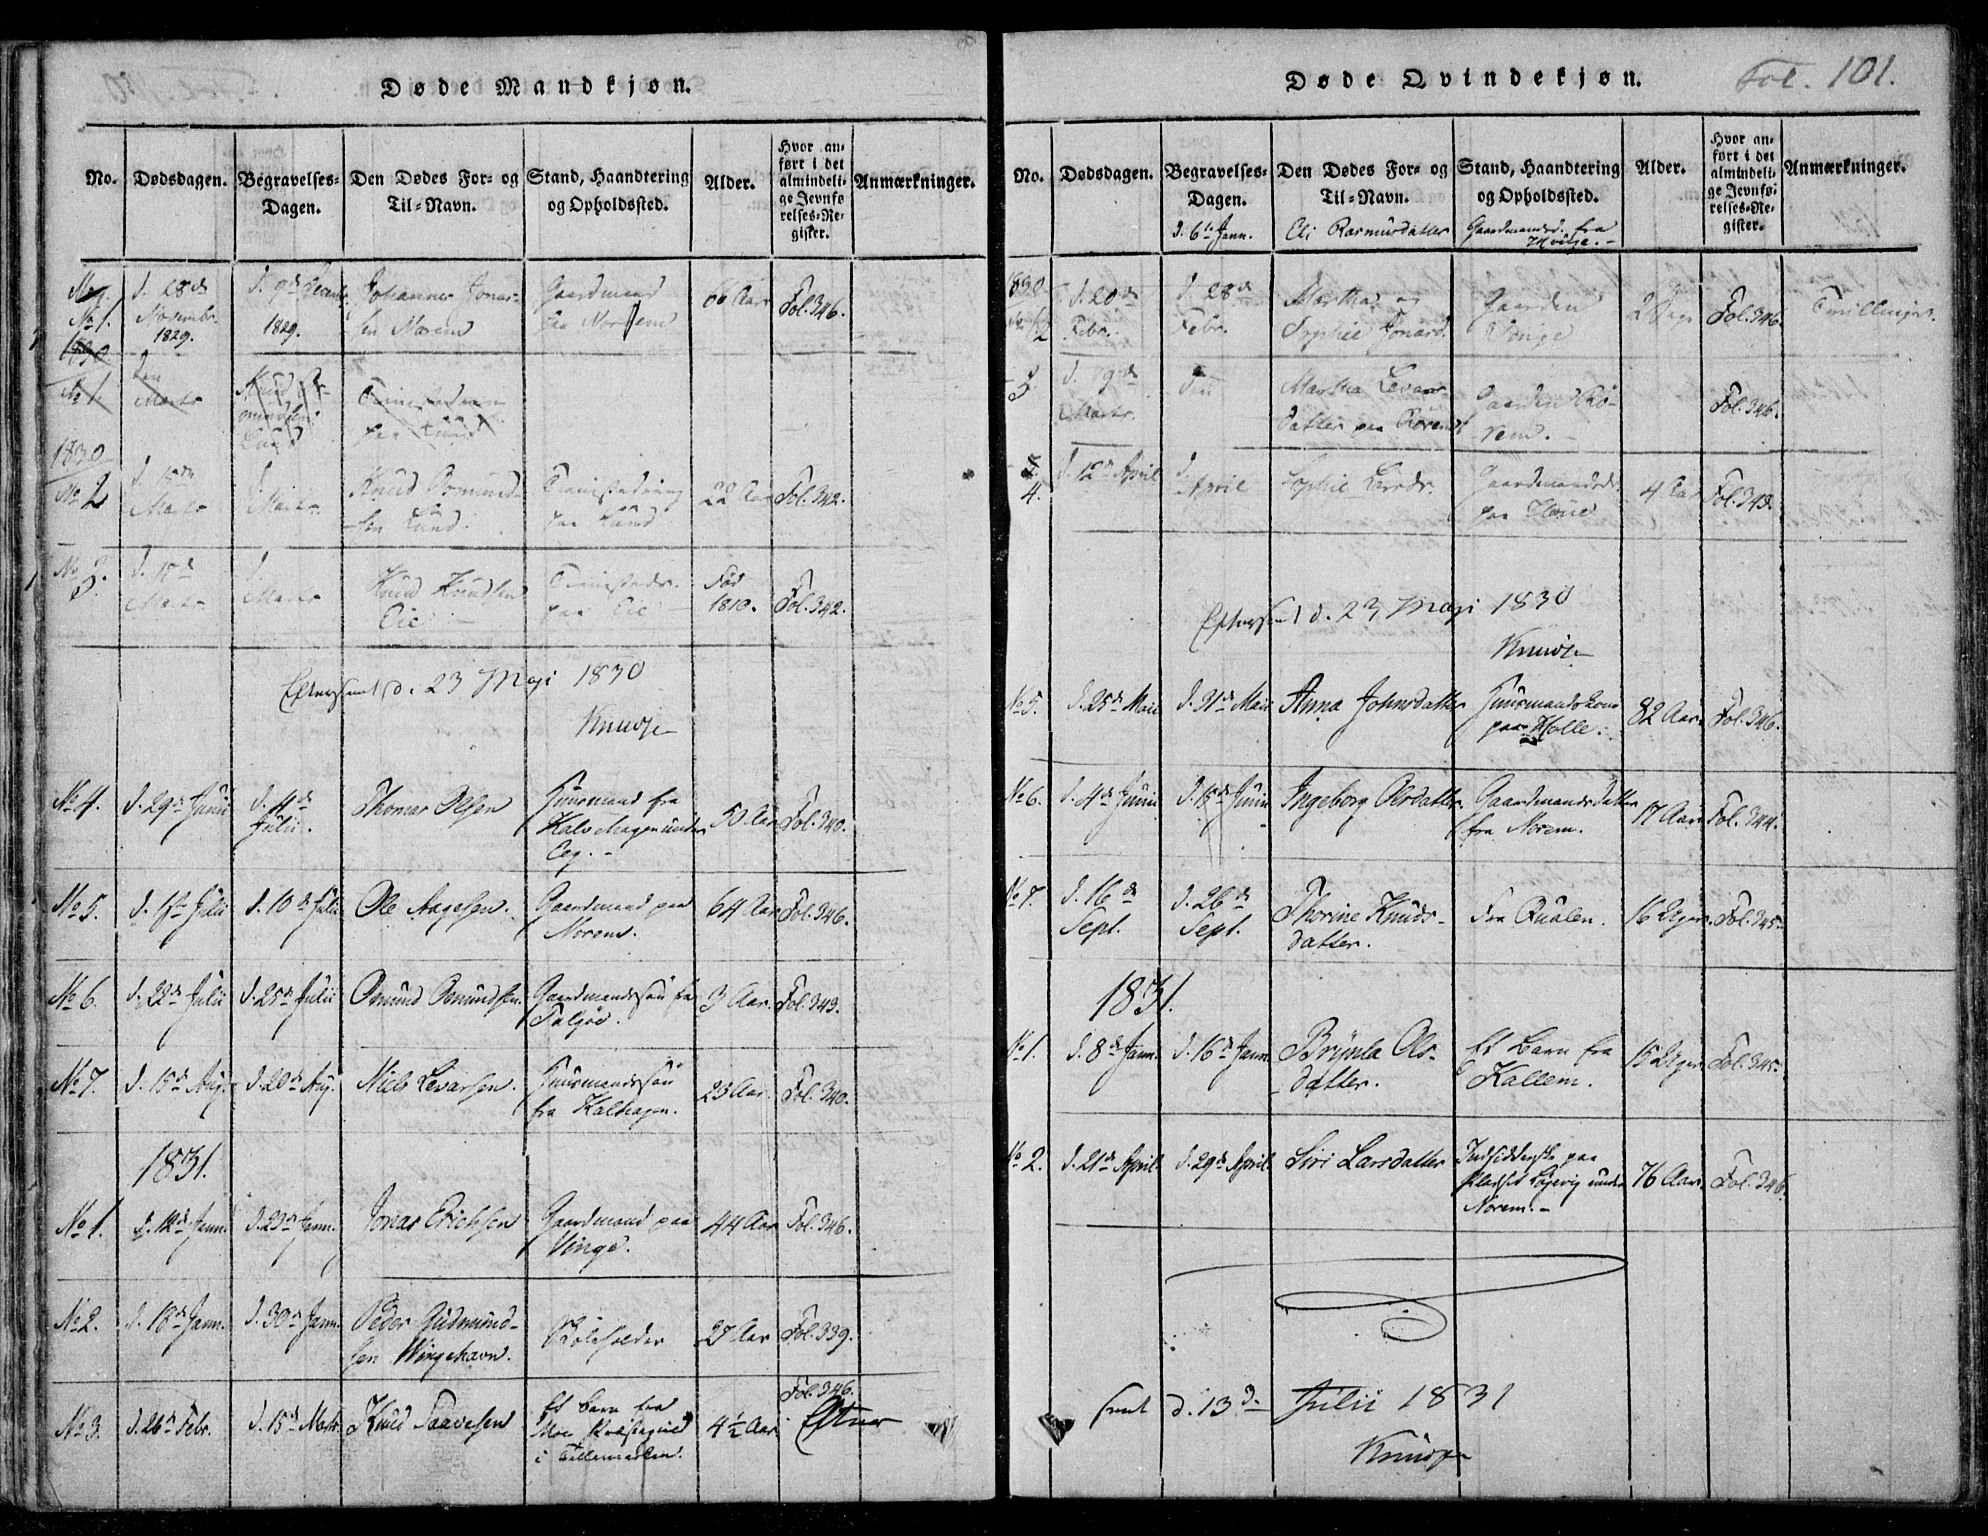 Døde Mandkjøn.
No. Dødsdagen. Begravelses-Dagen. Den Dødes For- og Til-Navn. Stand, Haandtering og Opholdssted. Alder. Hvor anført i det almindelige Jevnførelses-Register. Anmærkninger.
No 1. d. 28de Novembr. 1829. d. 9de Decembr 1829. Johannes Jonassen Norem Gaardmand paa Norem 66 Aar Fol. 346.
1830 No 1. den Marts Knud Osmundsen Lund Tienistedreng paa Lund
1830 No 2 d. 15de Marts d. Marts Knud Osmundsen Lund. Tienistedreng paa Lund 22 Aar Fol. 342.
No 3. d. 15de Marts d. Marts Knud Knudsen Eie Tienistedr. paa Eie Fød 1810. Fol. 342.
Efterseet d. 23 Maji 1830
Knudse
No 4. d. 29de Junii d. 4de Julii. Thomas Olsen Huusmand fra Kalvehagen under Eeg. 50 Aar Fol. 340.
No 5. d. 1ste Julii d. 10de Julii Ole Aagesen. Gaardmand paa Norem. 64 Aar Fol. 346.
No 6. d. 22de Julii d. 25de Julii Osmund Osmundsen. Gaardmandssøn fra Talgøe. 3 Aar. Fol. 343.
No 7. d. 15de Aug. d. 20de Aug. Niels Levarsen. Huusmandssøn fra Kalhagen. 23 Aar. Fol. 340.
1831.
No 1. d. 12de Jann. d. 23de Jann. Jonas Erichsen Gaardmand paa Vinge. 44 Aar Fol. 346.
No 2. d. 18de Jann. d. 30de Jann. Peder Gudmundsen Wingehavn. Skoleholder 27 Aar Fol. 339.
No 3. d. 26de Febr. d. 15de Marts Knud Taavesen Et Barn fra Moe Præstegield i Tellemarken. 4 1/2 Aar Fol. 346.
Døde Qvindekjøn.
Fol. 101.
No. Dødsdagen. Begravelses-Dagen. Den Dødes For- og Til-Navn. Stand, Haandtering og Opholdssted. Alder. Hvor anført i det almindelige Jevnførelses-Register. Anmærkninger.
d. 6te Jann. Eli Rasmusdatter Gaardmandsd. fra
1830 No 2 d. 20de Febr. d. 28de Febr. Martha og Sophie Jonasd. Gaarden Vinge 2 Dage Fol. 346. Tvillinger.
3. d. 9de Marts. den Martha Levarsdatter paa Rørem Gaarden Rørem. Fol. 346.
4. d. 12de April d. April Sophie Larsdr. Gaardmandsdr. paa 4 Aar Fol. 343.
Efterseet d. 23 Maji 1830
Knudse
No 5. d. 25de Maii d. 31de Maii Anna Johnsdatter Huusmandskone paa Holle. 82 Aar. Fol. 346.
No 6. d. 4de Junii d. 15de Junii Ingeborg Olsdatter. Gaardmandsdatter fra Norem. 17 Aar Fol. 344.
No 7. d. 16de Sept. d. 26de Sept. Thorine Knudsdatter. Fra Qualen. 16 Uger. Fol. 345.
1831.
No 1. d. 8de Jann. d. 16de Jann. Brynla Olsdatter. Et Barn fra Kallem. 15 Uger Fol. 345.
No 2. d. 21de April. d. 29de April. Siri Larsdatter Indsidderske paa Pladset under Norem. 76 Aar. Fol. 346.
seet d. 13de Julii 1831
Knudse